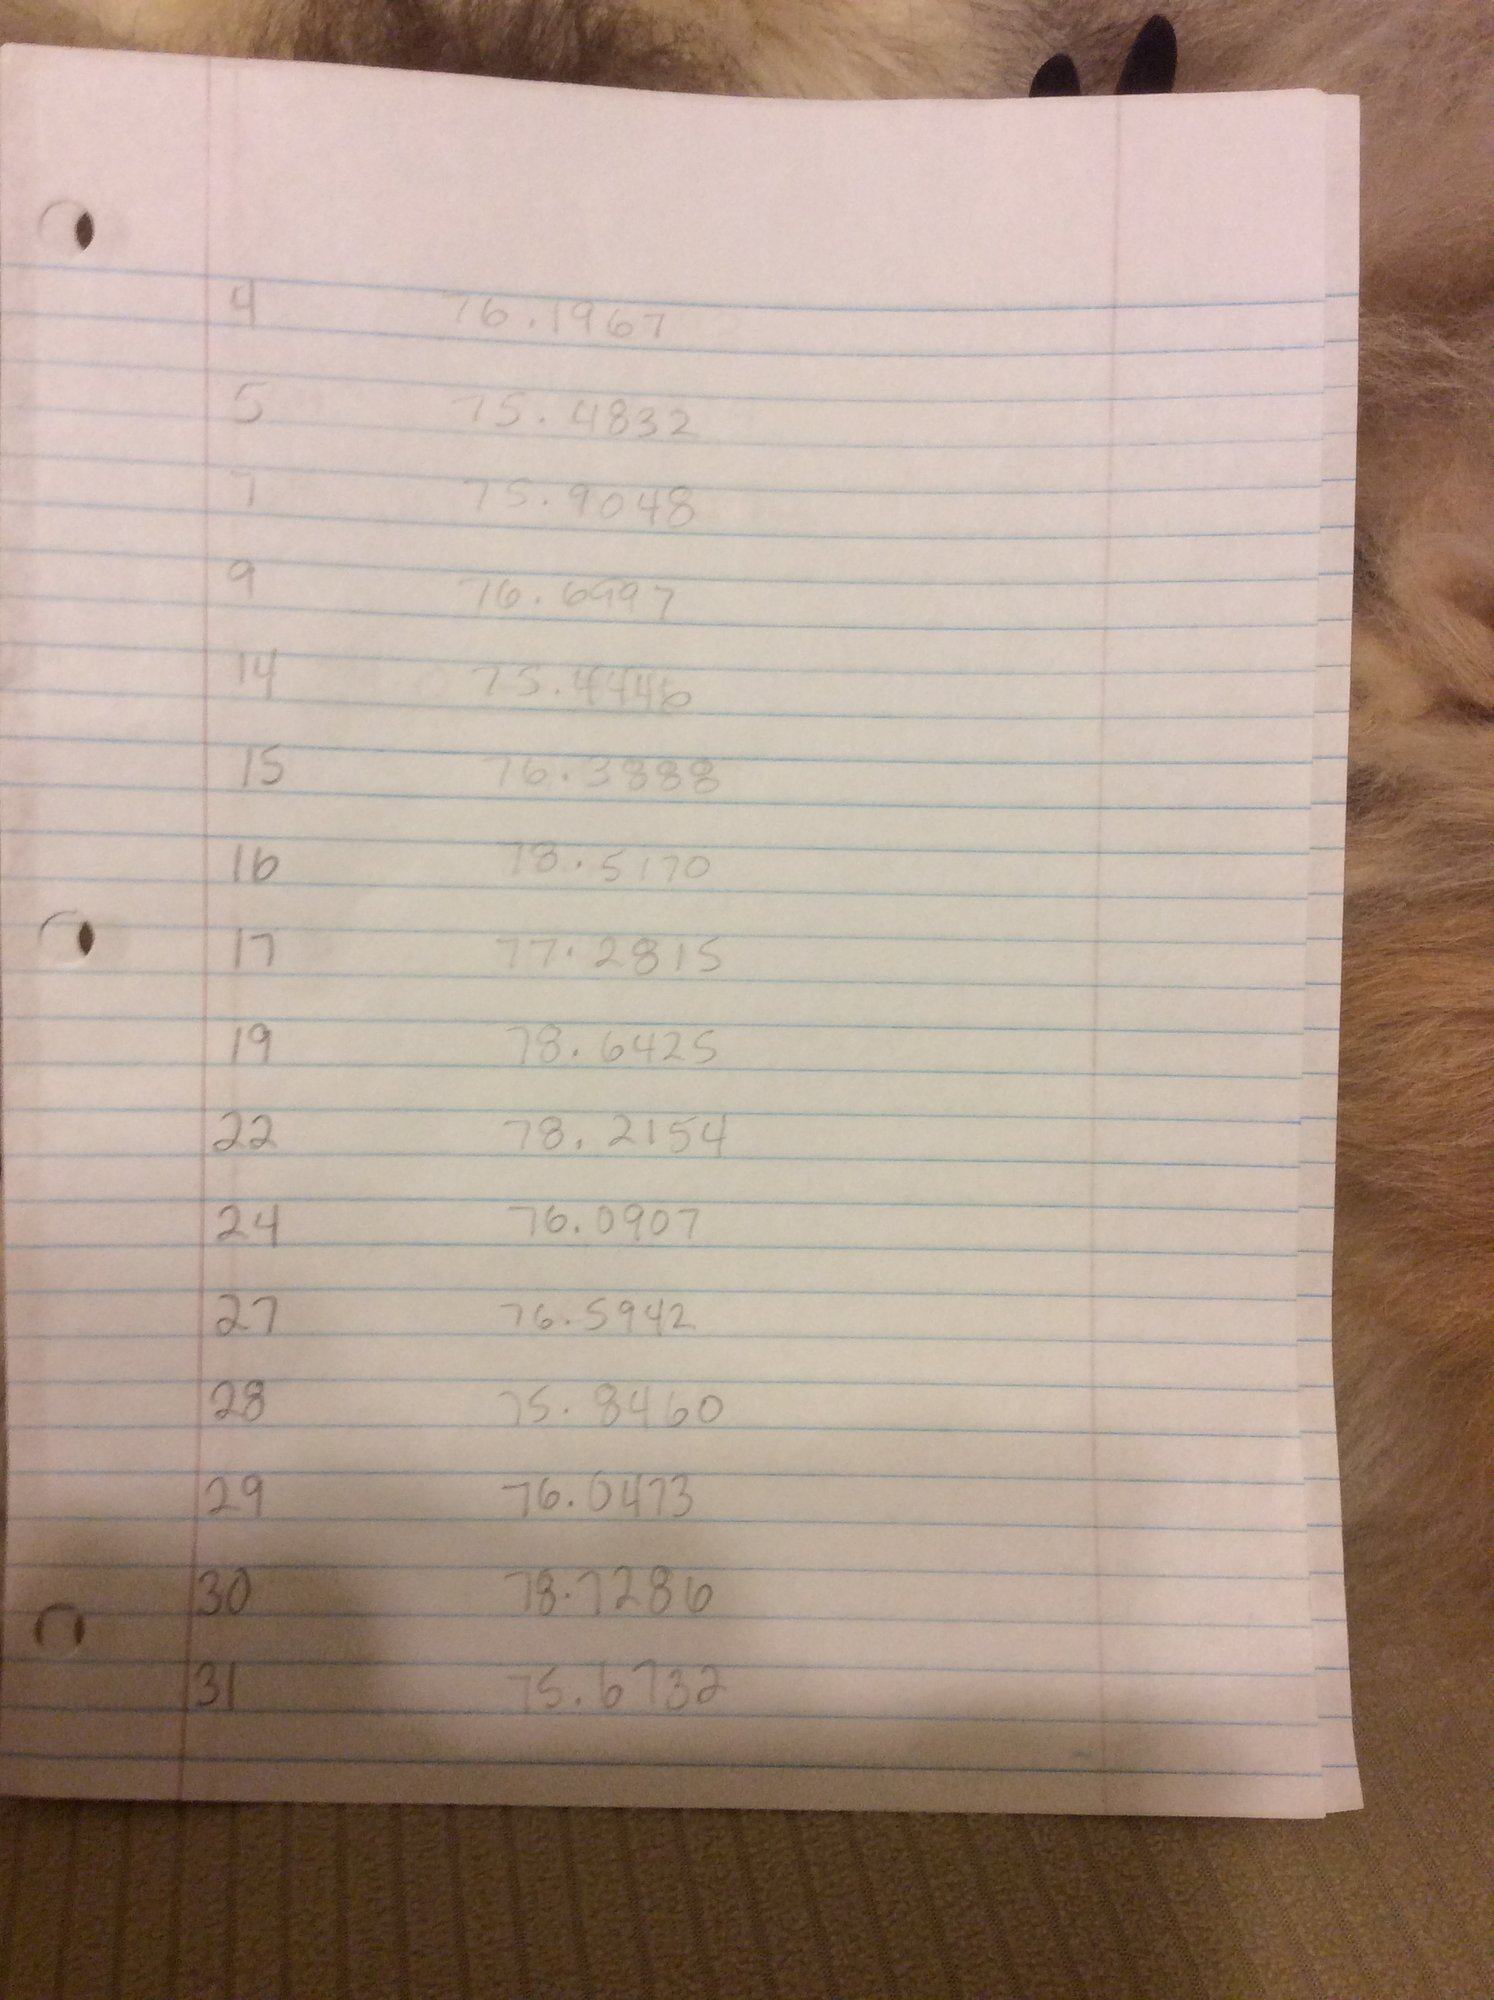 4 76.1967
5 75.4832
7 75.9048
9 76.6997
14 75.4446
15 76.3888
16 78.5170
17 77.2815
19 78.6425
22 78.2154
24 76.0907
27 76.5942
28 75.8460
29 76.0473
30 78.7286
31 75.6732